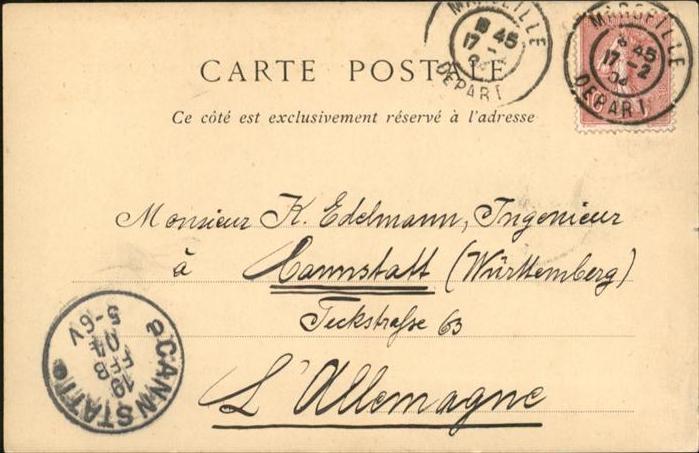 MARSEILLE
45
17 -
DEPART
MARSEILLE
45
17 - 2
04
DEPART
CARTE POSTALE
Ce côté est exclusivement réservé à l'adresse
Monsieur K. Edelmann, Ingenieur
à Cannstatt (Württemberg)
Teckstraße 63
L'Allemagne
CANNSTATT
19
FEB
04
5-6V